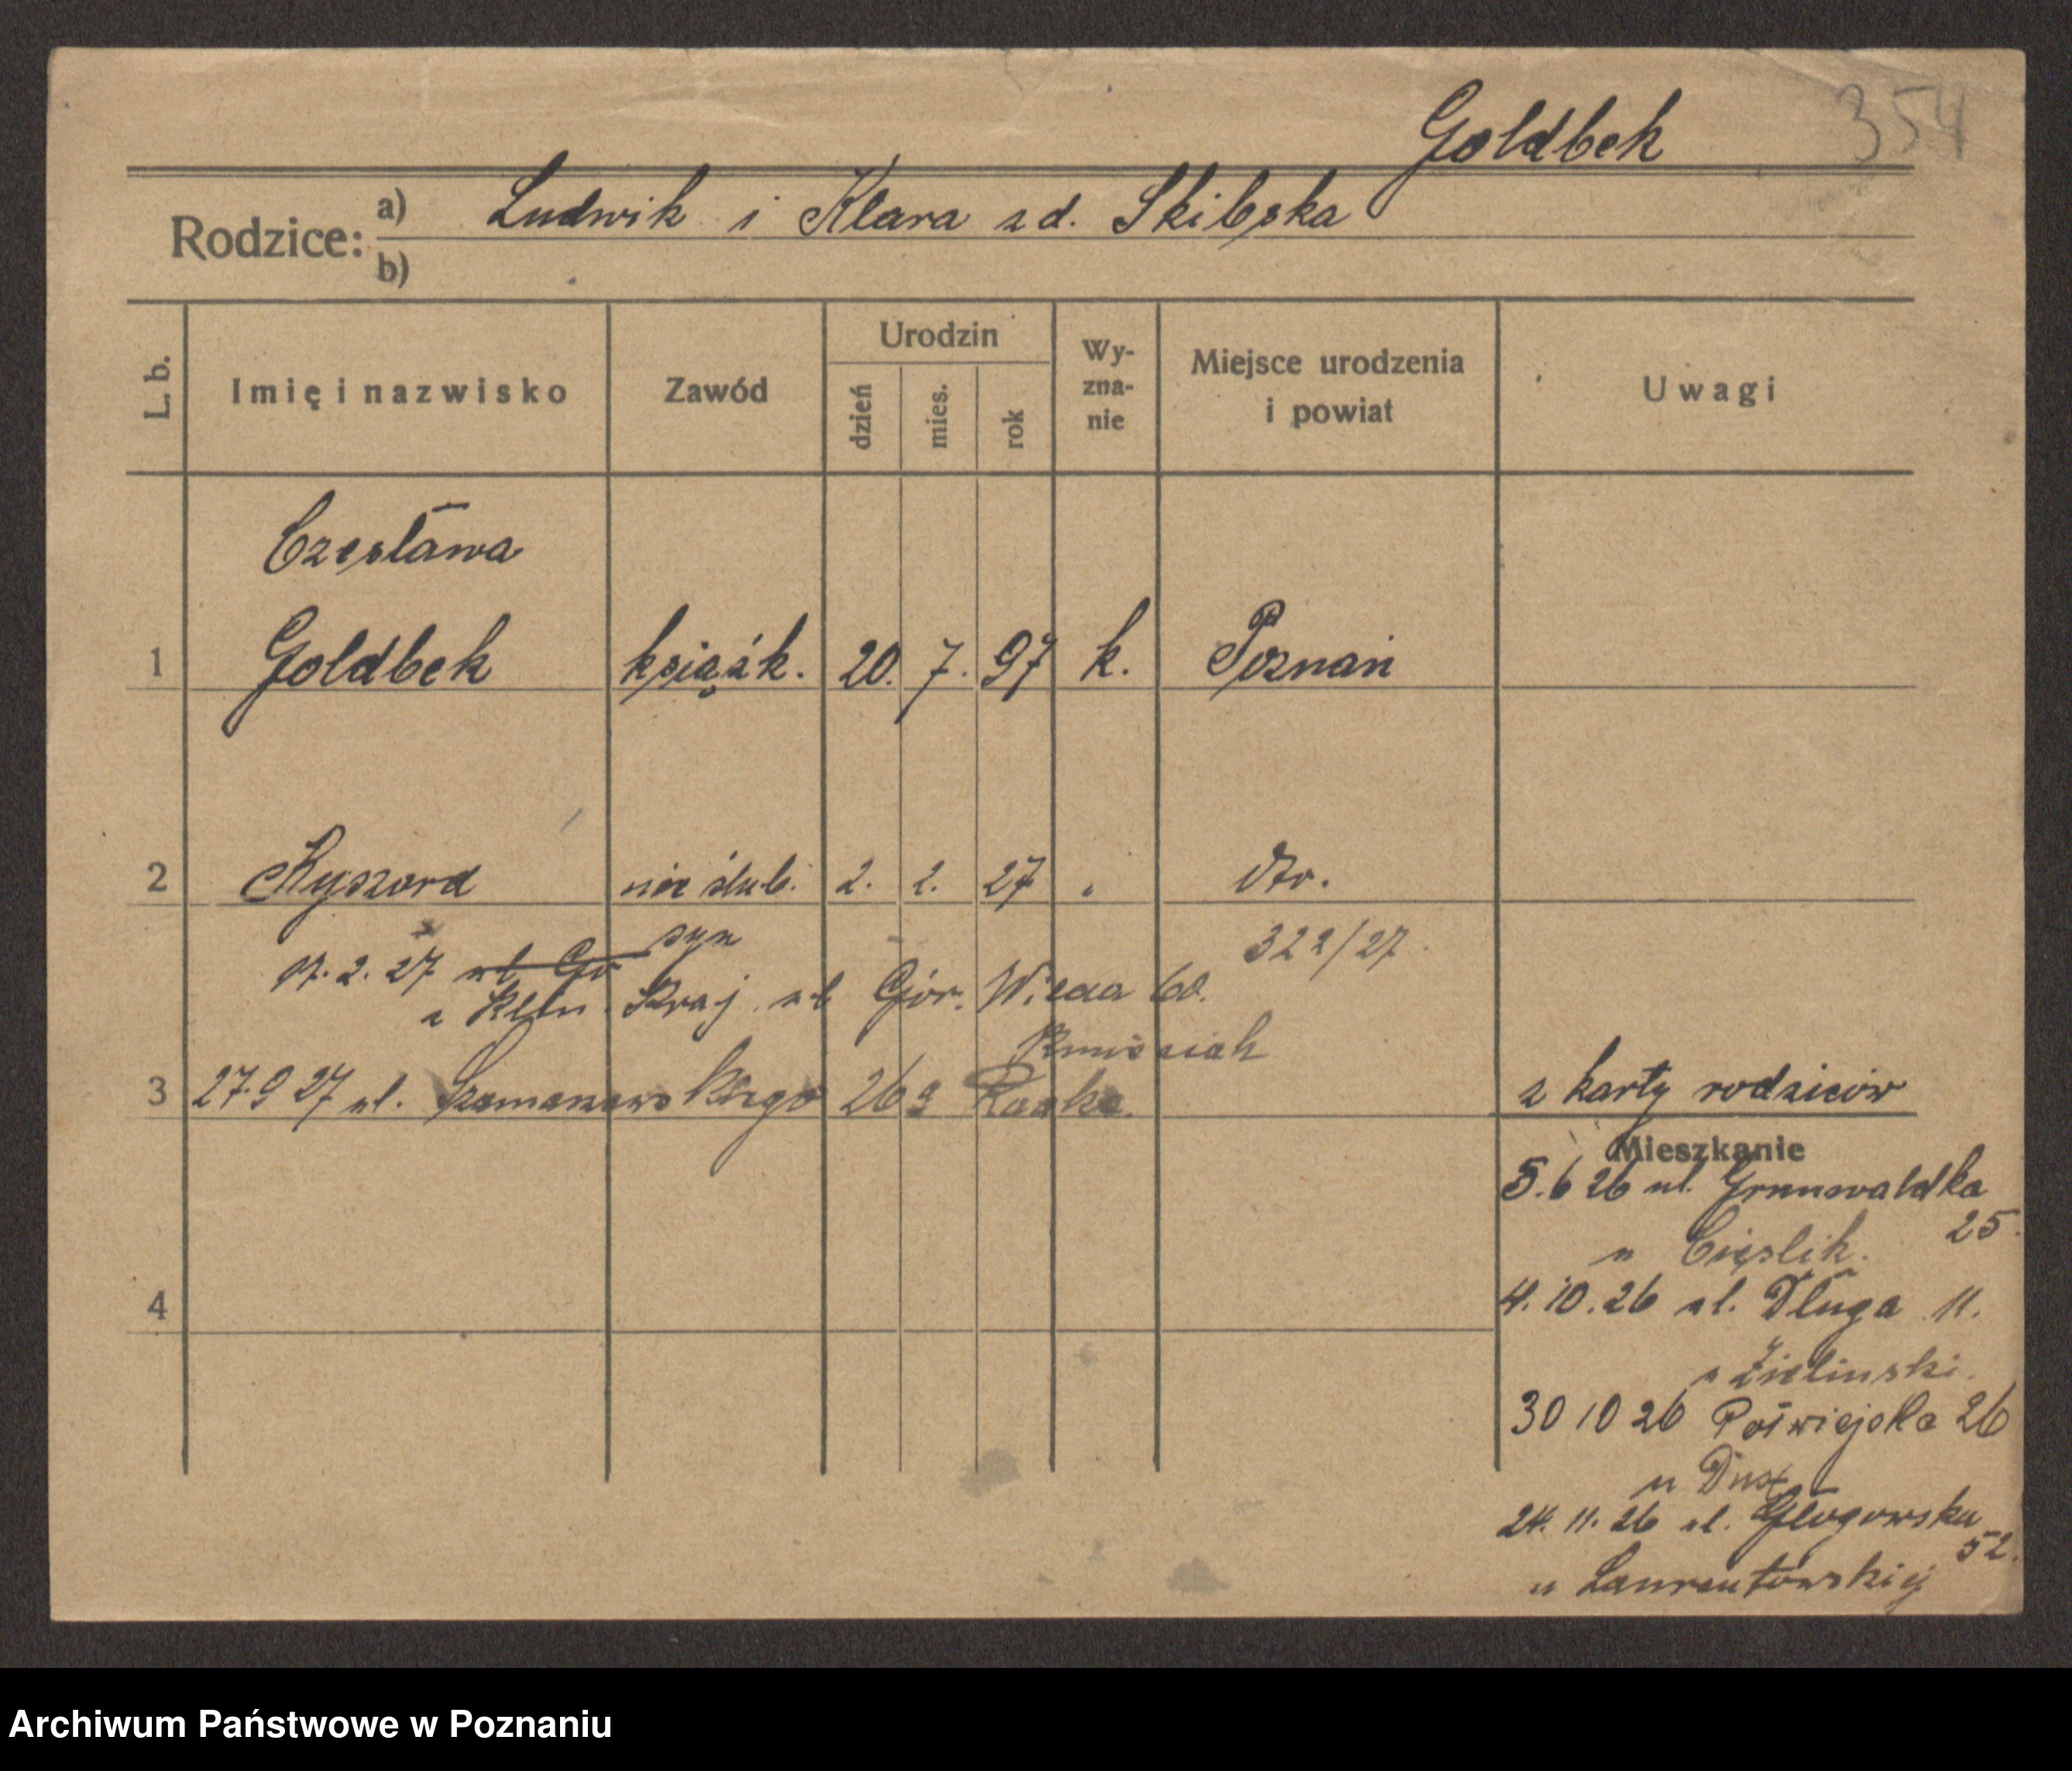 Goldbek
354
Rodzice: a) Ludwik i Klara z d. Skibska
b)
L. b. Imię i nazwisko Zawód Urodzin dzień mies. rok Wy-zna-nie Miejsce urodzenia i powiat Uwagi
Czesława
1 Goldbek książk. 20. 7. 97 k. Poznań
2 Ryszard nie ślub. 2. 2. 27 " dto.
syn 322/27.
17. 2. 27 ul. Gó
z Klin. Kraj. ul Gór. Wilda 60.
3 27 9 27 ul. Szamarzewskiego 26
z karty rodziców
Mieszkanie
5. 6 26 ul. Grunwaldka
25.
u Cieślik.
4. 10. 26 ul. Długa 11.
u Zieliński.
4
30 10 26 Półwiejska 26
u Dux
24. 11. 26 ul. Głogowska
52.
u Laurentowskiej
Archiwum Państwowe w Poznaniu